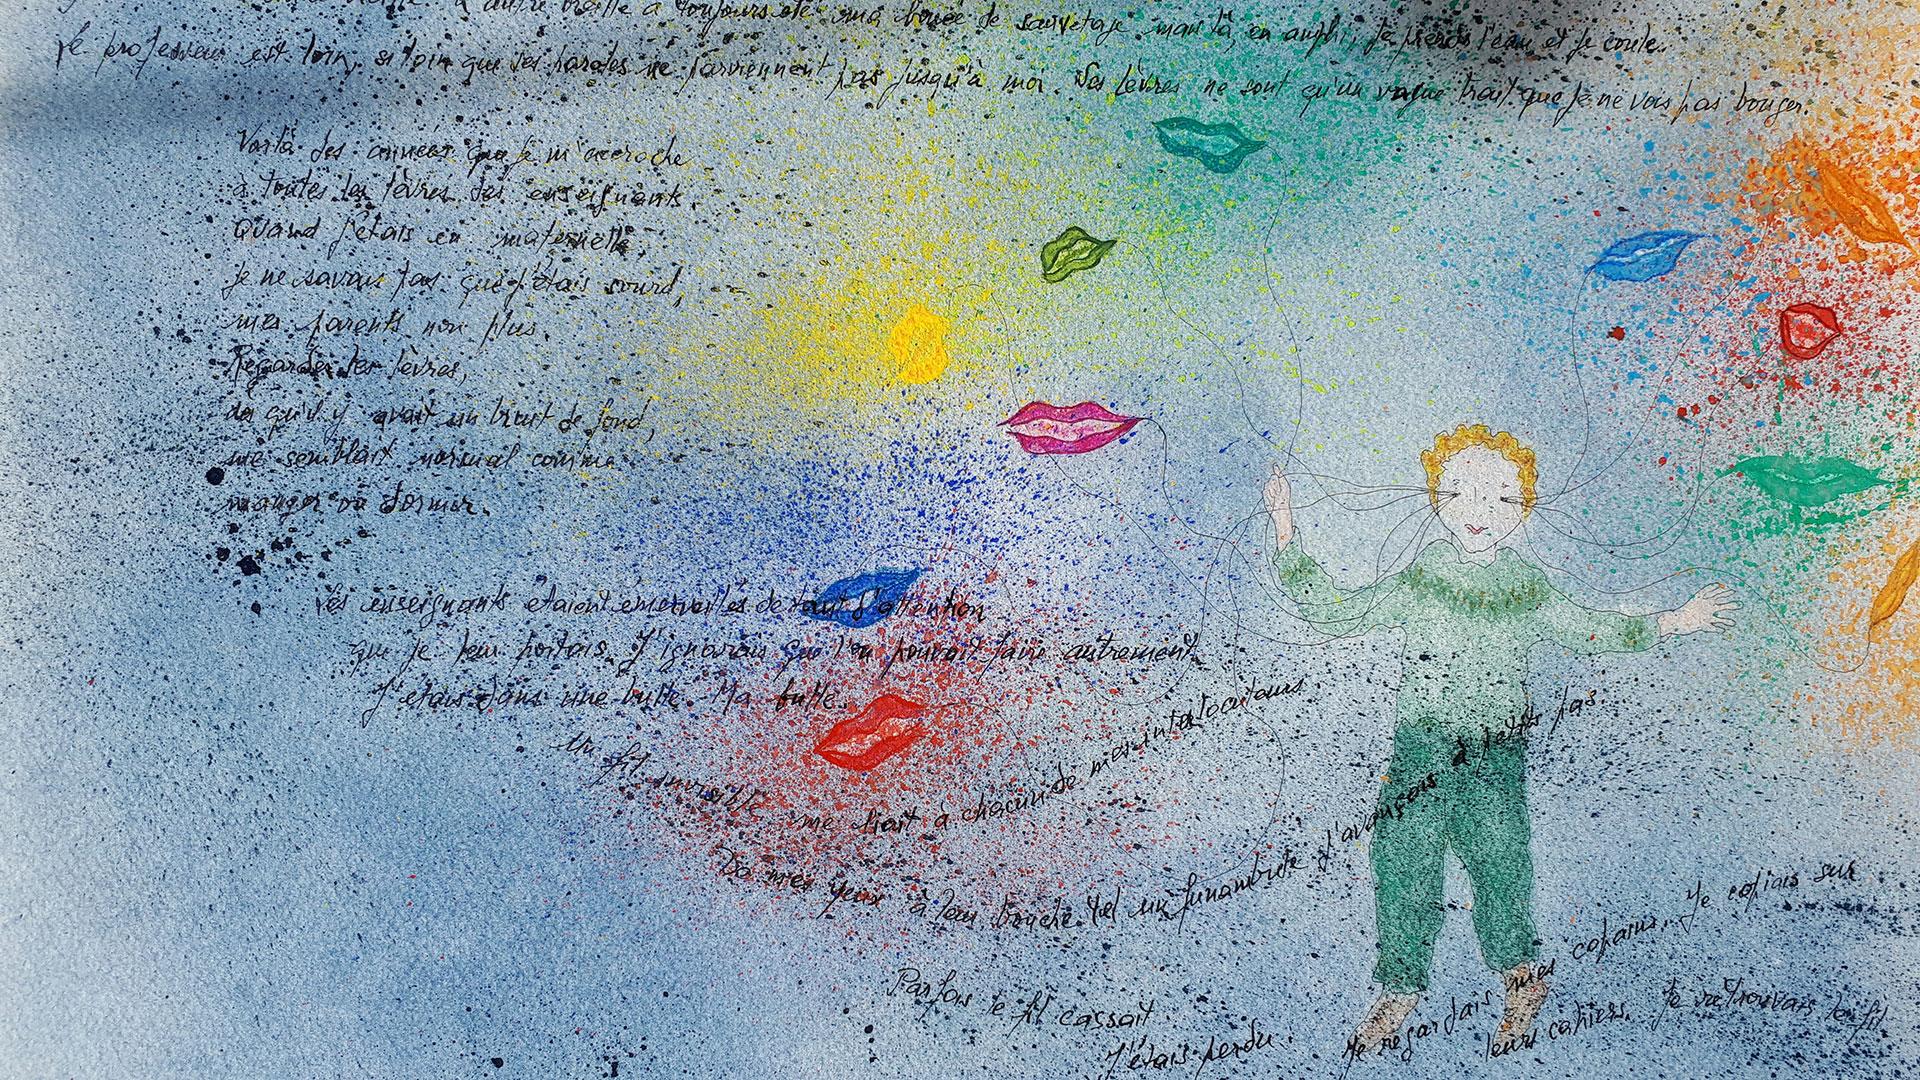 l'autre oreille a toujours été ma bouée de sauvetage mais là, en amphi, je prends l'eau et je coule.
Le professeur est loin, si loin que ses paroles ne parviennent pas jusqu'à moi. Ses lèvres ne sont qu'un vague trait que je ne vois pas bouger.
Voilà des années que je m'accroche
à toutes les lèvres des enseignants.
Quand j'étais en maternelle,
je ne savais pas que j'étais sourd,
mes parents non plus.
Regarder les lèvres,
dès qu'il y avait un bruit de fond,
me semblait normal comme
manger ou dormir.
Les enseignants étaient émerveillés de tant d'attention
que je leur portais. J'ignorais que l'on pouvait faire autrement.
J'étais dans une bulle. Ma bulle.
Un fil invisible me liait à chacun de mes interlocuteurs
De mes yeux à leur bouche tel un funambule j'avançais à petits pas.
Parfois le fil cassait
J'étais perdu.
Je regardais mes copains. Je copiais sur
leurs cahiers. Je retrouvais le fil